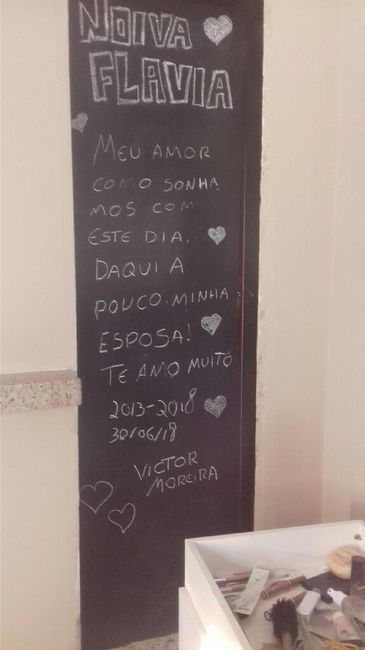 NOIVA
FLAVIA
MEU AMOR
COMO SONHA
MOS COM
ESTE DIA,
DAQUI A
POUCO MINHA
ESPOSA!
TE AMO MUITO
2013-2018
30/06/18
VICTOR
MOREIRA